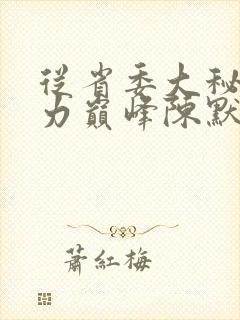 從省委大秘
力巔峰陳默
蕭紅梅